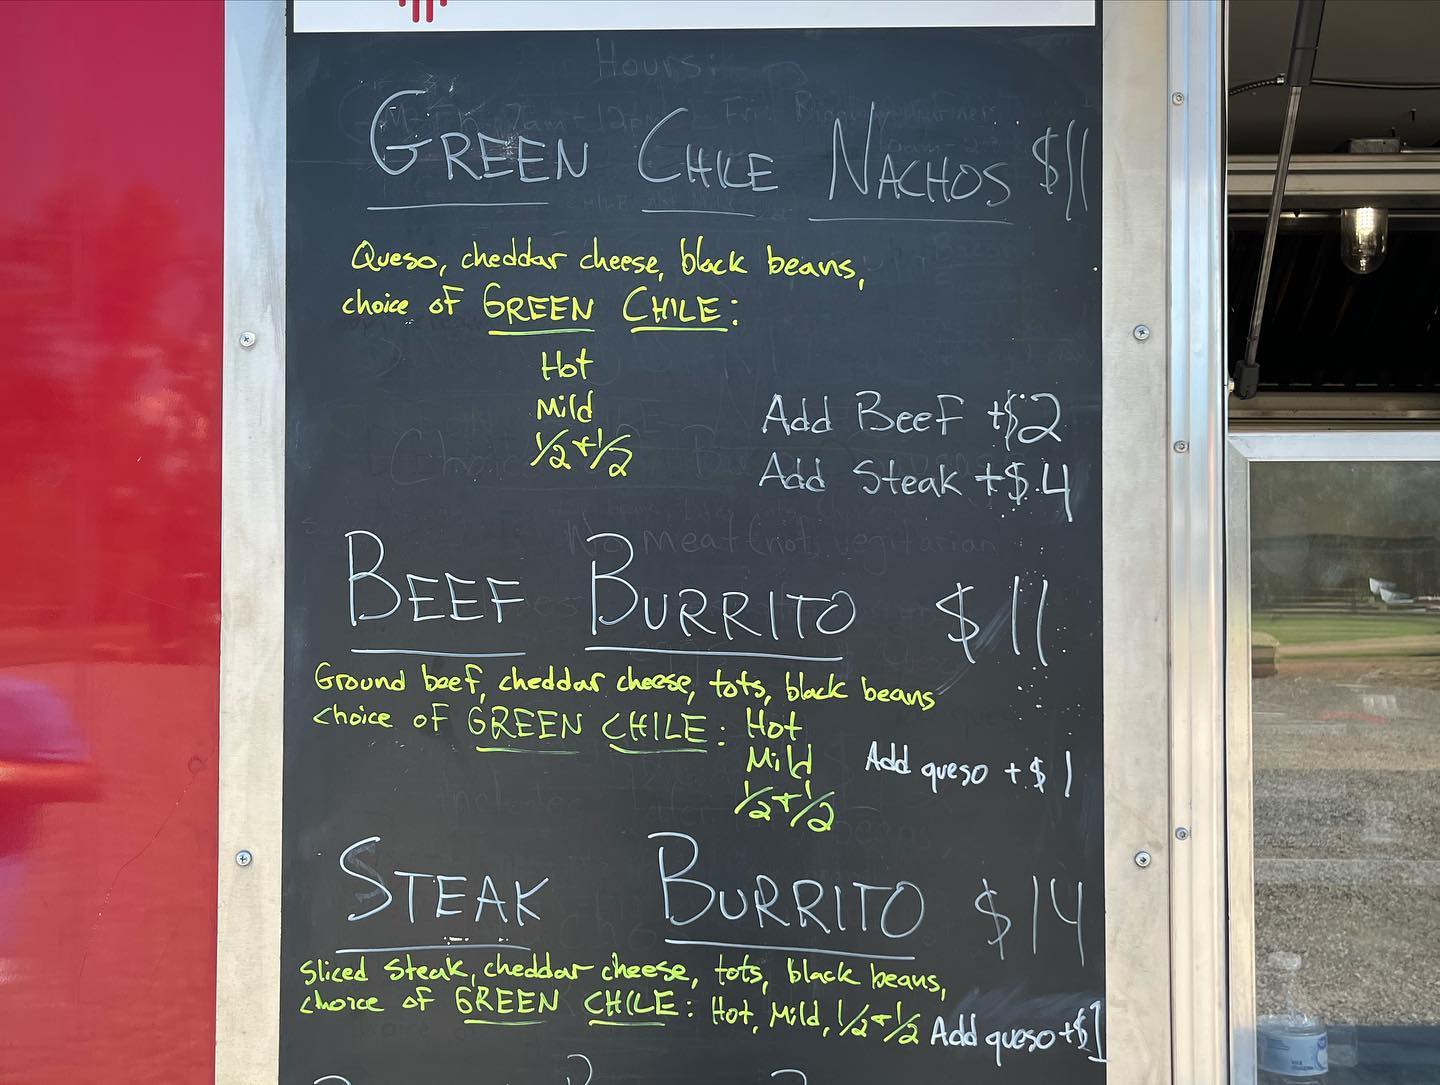 Hours:
GREEN CHILE NACHOS $11
Queso, cheddar cheese, black beans,
choice of GREEN CHILE:
Hot
Mild
1/2 + 1/2
Add Beef +$2
Add Steak +$4
No meat (not vegitarian
BEEF BURRITO $11
Ground beef, cheddar cheese, tots, black beans
choice of GREEN CHILE: Hot
Mild
1/2 + 1/2
Add queso +$1
STEAK BURRITO $14
Sliced Steak, cheddar cheese, tots, black beans,
choice of GREEN CHILE: Hot, Mild, 1/2 + 1/2
Add queso +$1